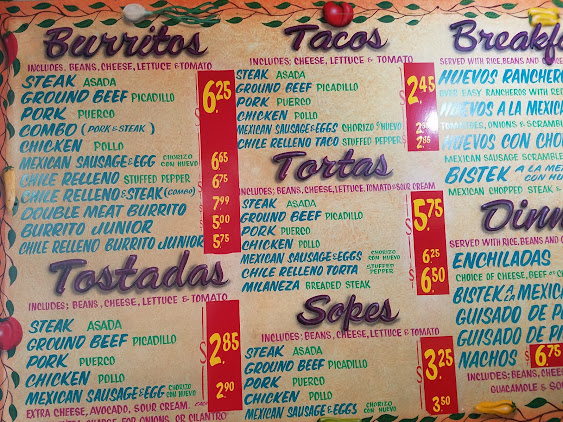 Burritos
INCLUDES; BEANS, CHEESE, LETTUCE & TOMATO
STEAK ASADA
GROUND BEEF PICADILLO
PORK PUERCO
COMBO (PORK & STEAK)
CHICKEN POLLO
6.25
MEXICAN SAUSAGE & EGG CHORIZO CON HUEVO 6.65
CHILE RELLENO STUFFED PEPPER 6.75
CHILE RELLENO & STEAK (COMBO) 7.99
DOUBLE MEAT BURRITO
BURRITO JUNIOR 5.00
CHILE RELLENO BURRITO JUNIOR 5.75
Tostadas
INCLUDES; BEANS, CHEESE, LETTUCE & TOMATO
STEAK ASADA
GROUND BEEF PICADILLO
PORK PUERCO
CHICKEN POLLO
$2.85
MEXICAN SAUSAGE & EGG CHORIZO CON HUEVO 2.90
EXTRA CHEESE, AVOCADO, SOUR CREAM.
EXTRA CHARGE FOR ONIONS OR CILANTRO
Tacos
INCLUDES; CHEESE, LETTUCE & TOMATO
STEAK ASADA
GROUND BEEF PICADILLO
PORK PUERCO
CHICKEN POLLO
$2.45
MEXICAN SAUSAGE & EGGS CHORIZO C/ HUEVO
CHILE RELLENO TACO STUFFED PEPPER
Tortas
INCLUDES; BEANS, CHEESE, LETTUCE, TOMATO & SOUR CREAM
STEAK ASADA
GROUND BEEF PICADILLO
PORK PUERCO
CHICKEN POLLO
$5.75
MEXICAN SAUSAGE & EGGS CHORIZO CON HUEVO 6.25
CHILE RELLENO TORTA STUFFED PEPPER
MILANEZA BREADED STEAK
$6.50
Sopes
INCLUDES: BEANS, CHEESE, LETTUCE & TOMATO
STEAK ASADA
GROUND BEEF PICADILLO
PORK PUERCO
CHICKEN POLLO
$3.25
MEXICAN SAUSAGE & EGGS CHORIZO CON HUEVO 3.50
Breakfa
SERVED WITH RICE, BEANS AND
HUEVOS RANCHERO
OVER EASY RANCHEROS WITH RED
HUEVOS A LA MEXICA
TOMATOES, ONIONS & SCRAMBLE
HUEVOS CON CHO
MEXICAN SAUSAGE SCRAMBLE
BISTEK A LA MEX CON HU
MEXICAN CHOPPED STEAK &
Dinn
SERVED WITH RICE, BEANS AND
ENCHILADAS
CHOICE OF CHEESE, BEEF OR
BISTEK A LA MEXICA
GUISADO DE P
GUISADO DE P
NACHOS $6.75
INCLUDES: BEANS, CHEES
GUACAMOLE & SO